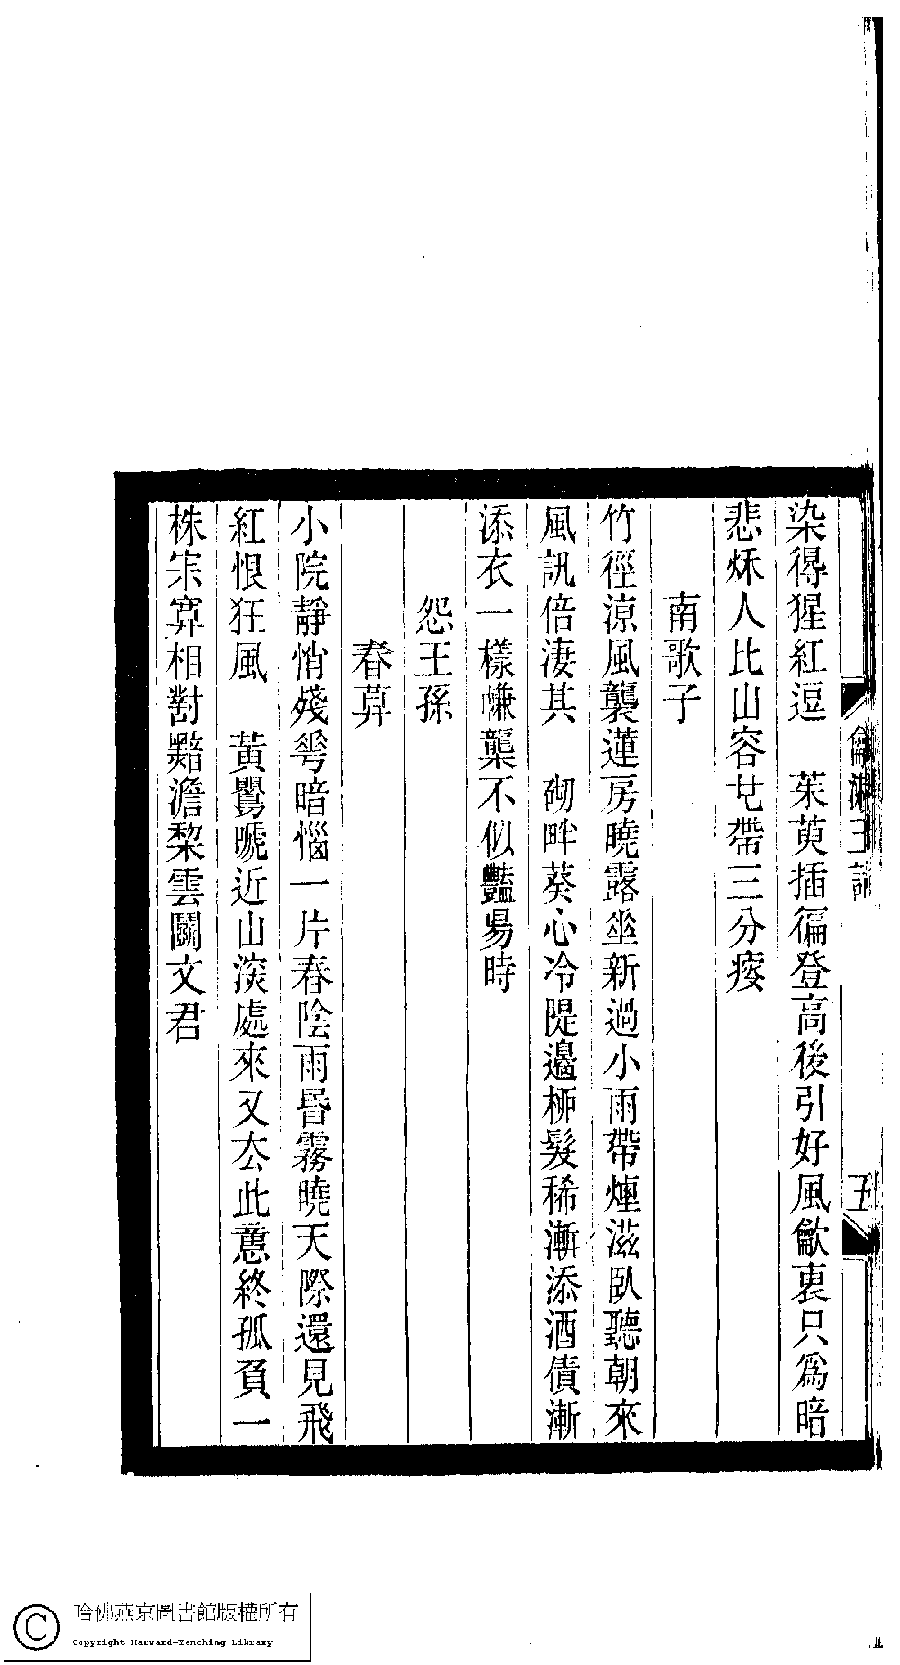 染得猩紅逗　茱萸插徧登高後引好風歈裏只爲暗
悲秌人比山容㐀帶三分痠
南歌子
竹徑涼風襲蓮房曉露㘴新過小雨帶煙滋臥聽朝來
風訊倍淒其　砌畔葵心冷隄邊栁髮稀漸添酒債漸
添衣一樣嫌龔不似豔昜時
怨王孫
春萛
小院靜悄殘芲暗惱一片春陰雨昬霧曉天際還見飛
紅恨狂風　黃鸎嗁近山湥處來又厺此意終孤負一
株宗算相對黯澹棃雲闗文君
哈佛燕京圖書館版權所有
Copyright Harvard-Yenching Library